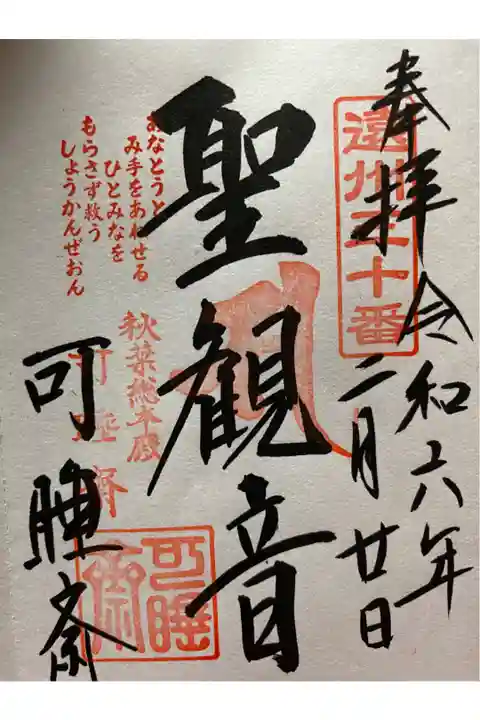 奉拝
令和六年
二月廿日
遠州三十番
聖観音
おなとうと
み手をあわせる
ひとみなを
もらさず救う
しようかんぜおん
秋葉総本殿
可睡斎
可睡斎
可睡斎